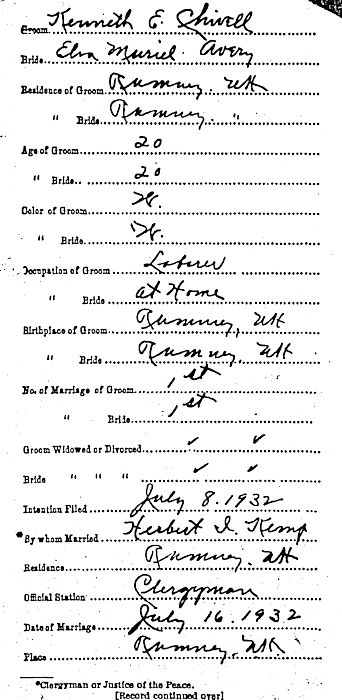 Groom Kenneth E. Shivell
Bride Elva Muriel Avery
Residence of Groom Rumney, NH
" Bride Rumney "
Age of Groom 20
" Bride 20
Color of Groom W.
" Bride W.
Occupation of Groom Laborer
" Bride at Home
Birthplace of Groom Rumney, NH
" Bride Rumney, NH
No. of Marriage of Groom 1st
" Bride 1st
Groom Widowed or Divorced ✓ ✓
Bride " " " ✓ ✓
Intention Filed July 8. 1932
*By whom Married Herbert I. Kemp
Residence Rumney, NH
Official Station Clergyman
Date of Marriage July 16. 1932
Place Rumney, NH
*Clergyman or Justice of the Peace.
[Record continued over]